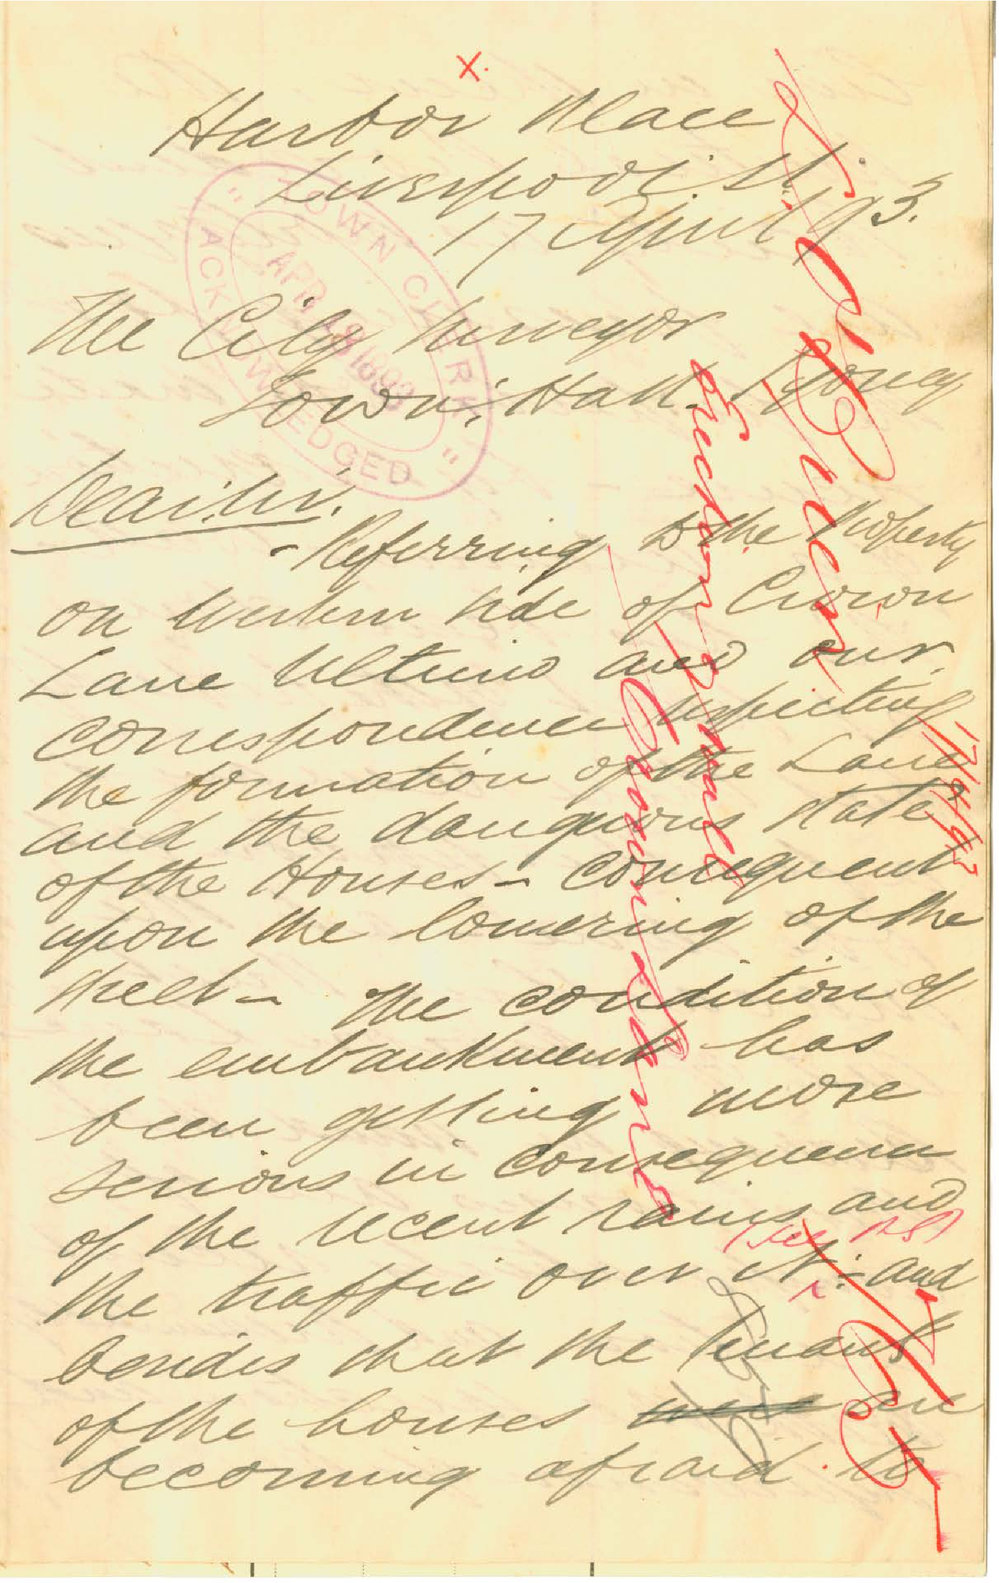 X.
Harbor Place
Liverpool St.
17 April /93.
The City Surveyor
Town Hall. Sydney
Dear Sir.
- Referring to the Property
on Western side of Crown
Lane Ultimo and our
correspondence respecting
the formation of the Lane
and the dangerous state
of the Houses - consequent
upon the lowering of the
street - The condition of
the embankment has
been getting more
serious in consequence
of the recent rains and
the traffic over it - and
besides that the tenants
of the houses were are
becoming afraid to
"TOWN CLERK"
APR 18 1893
ACKNOWLEDGED
O'Brien
17/4/93
Erection of wall
Crown Lane